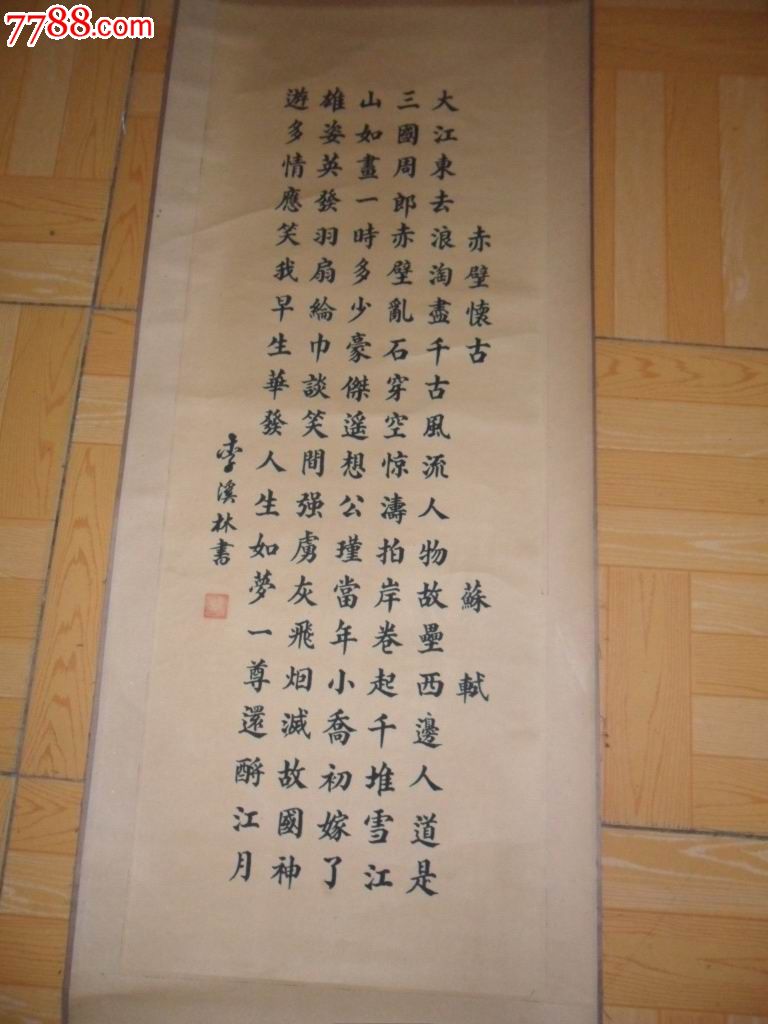 7788.com
赤壁懷古 蘇軾
大江東去浪淘盡千古風流人物故壘西邊人道是
三國周郎赤壁亂石穿空惊濤拍岸卷起千堆雪江
山如畫一時多少豪傑遥想公瑾當年小喬初嫁了
雄姿英發羽扇綸巾談笑間强虜灰飛烟滅故國神
遊多情應笑我早生華發人生如夢一尊還酹江月
李溪林書